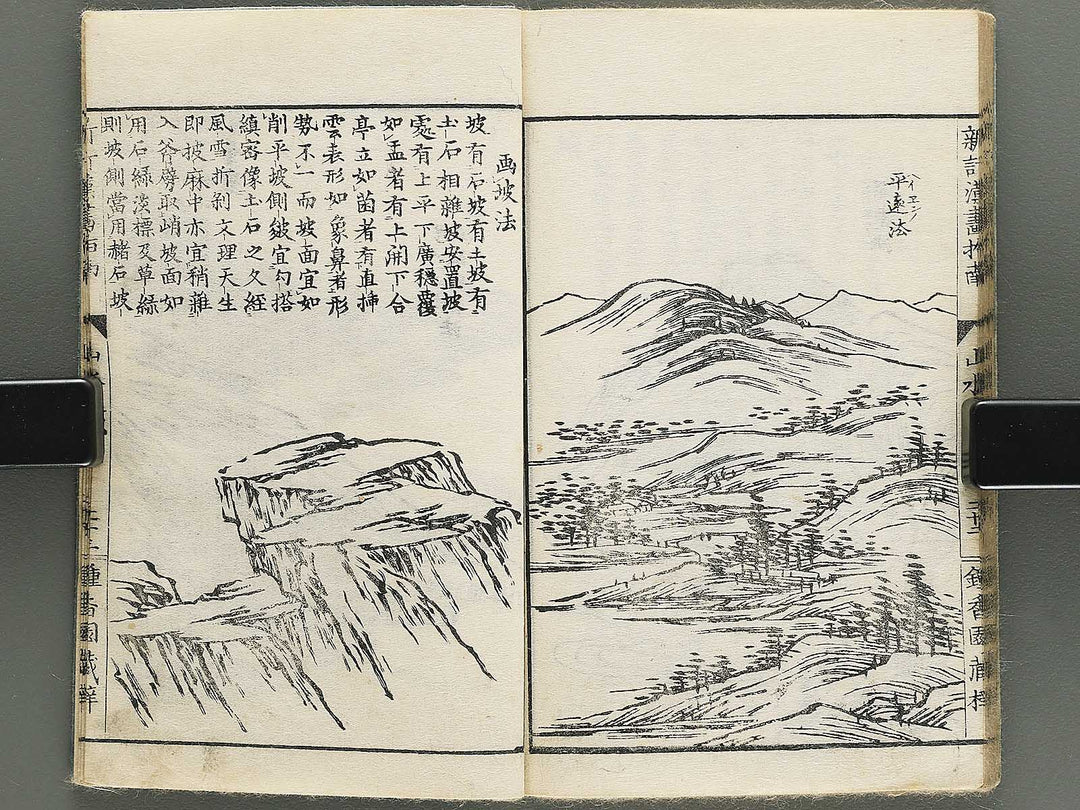 新訂漢畫指南
山水
鍾香園藏梓
平遠法
画坡法
坡有石坡有土坡有
土石相雜坡安置坡
處有上平下廣穩覆
如盂者有上開下合
亭立如菌者有直揷
雲表形如象鼻者形
勢不一而坡面宜如
削平坡側皴宜勾搭
縝密像土石之久經
風雪折剥文理天生
即披麻中亦宜稍雜
入斧劈取峭坡面如
用石綠淡標及草綠
則坡側當用赭石坡